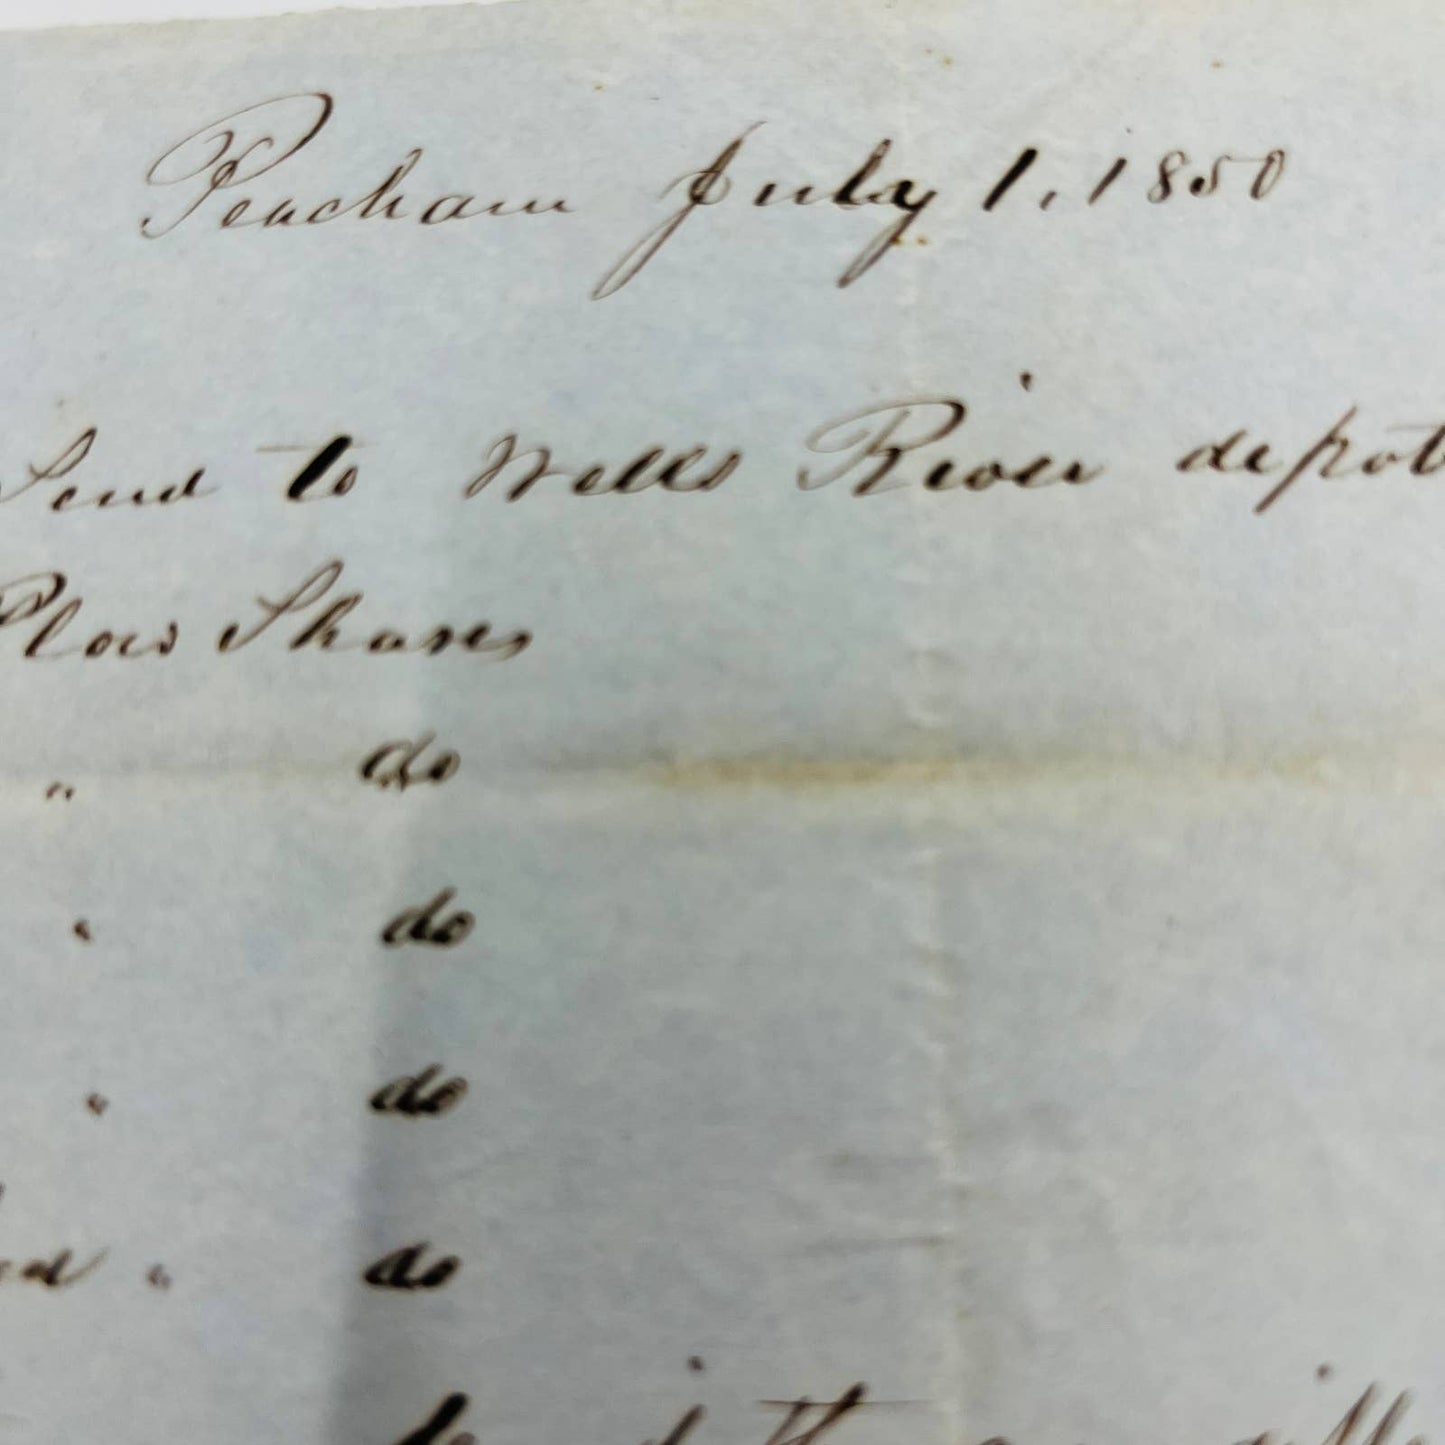 Peacham July 1, 1850
Send to Wells River depot
Plow Shares
" do
" do
" do
" do